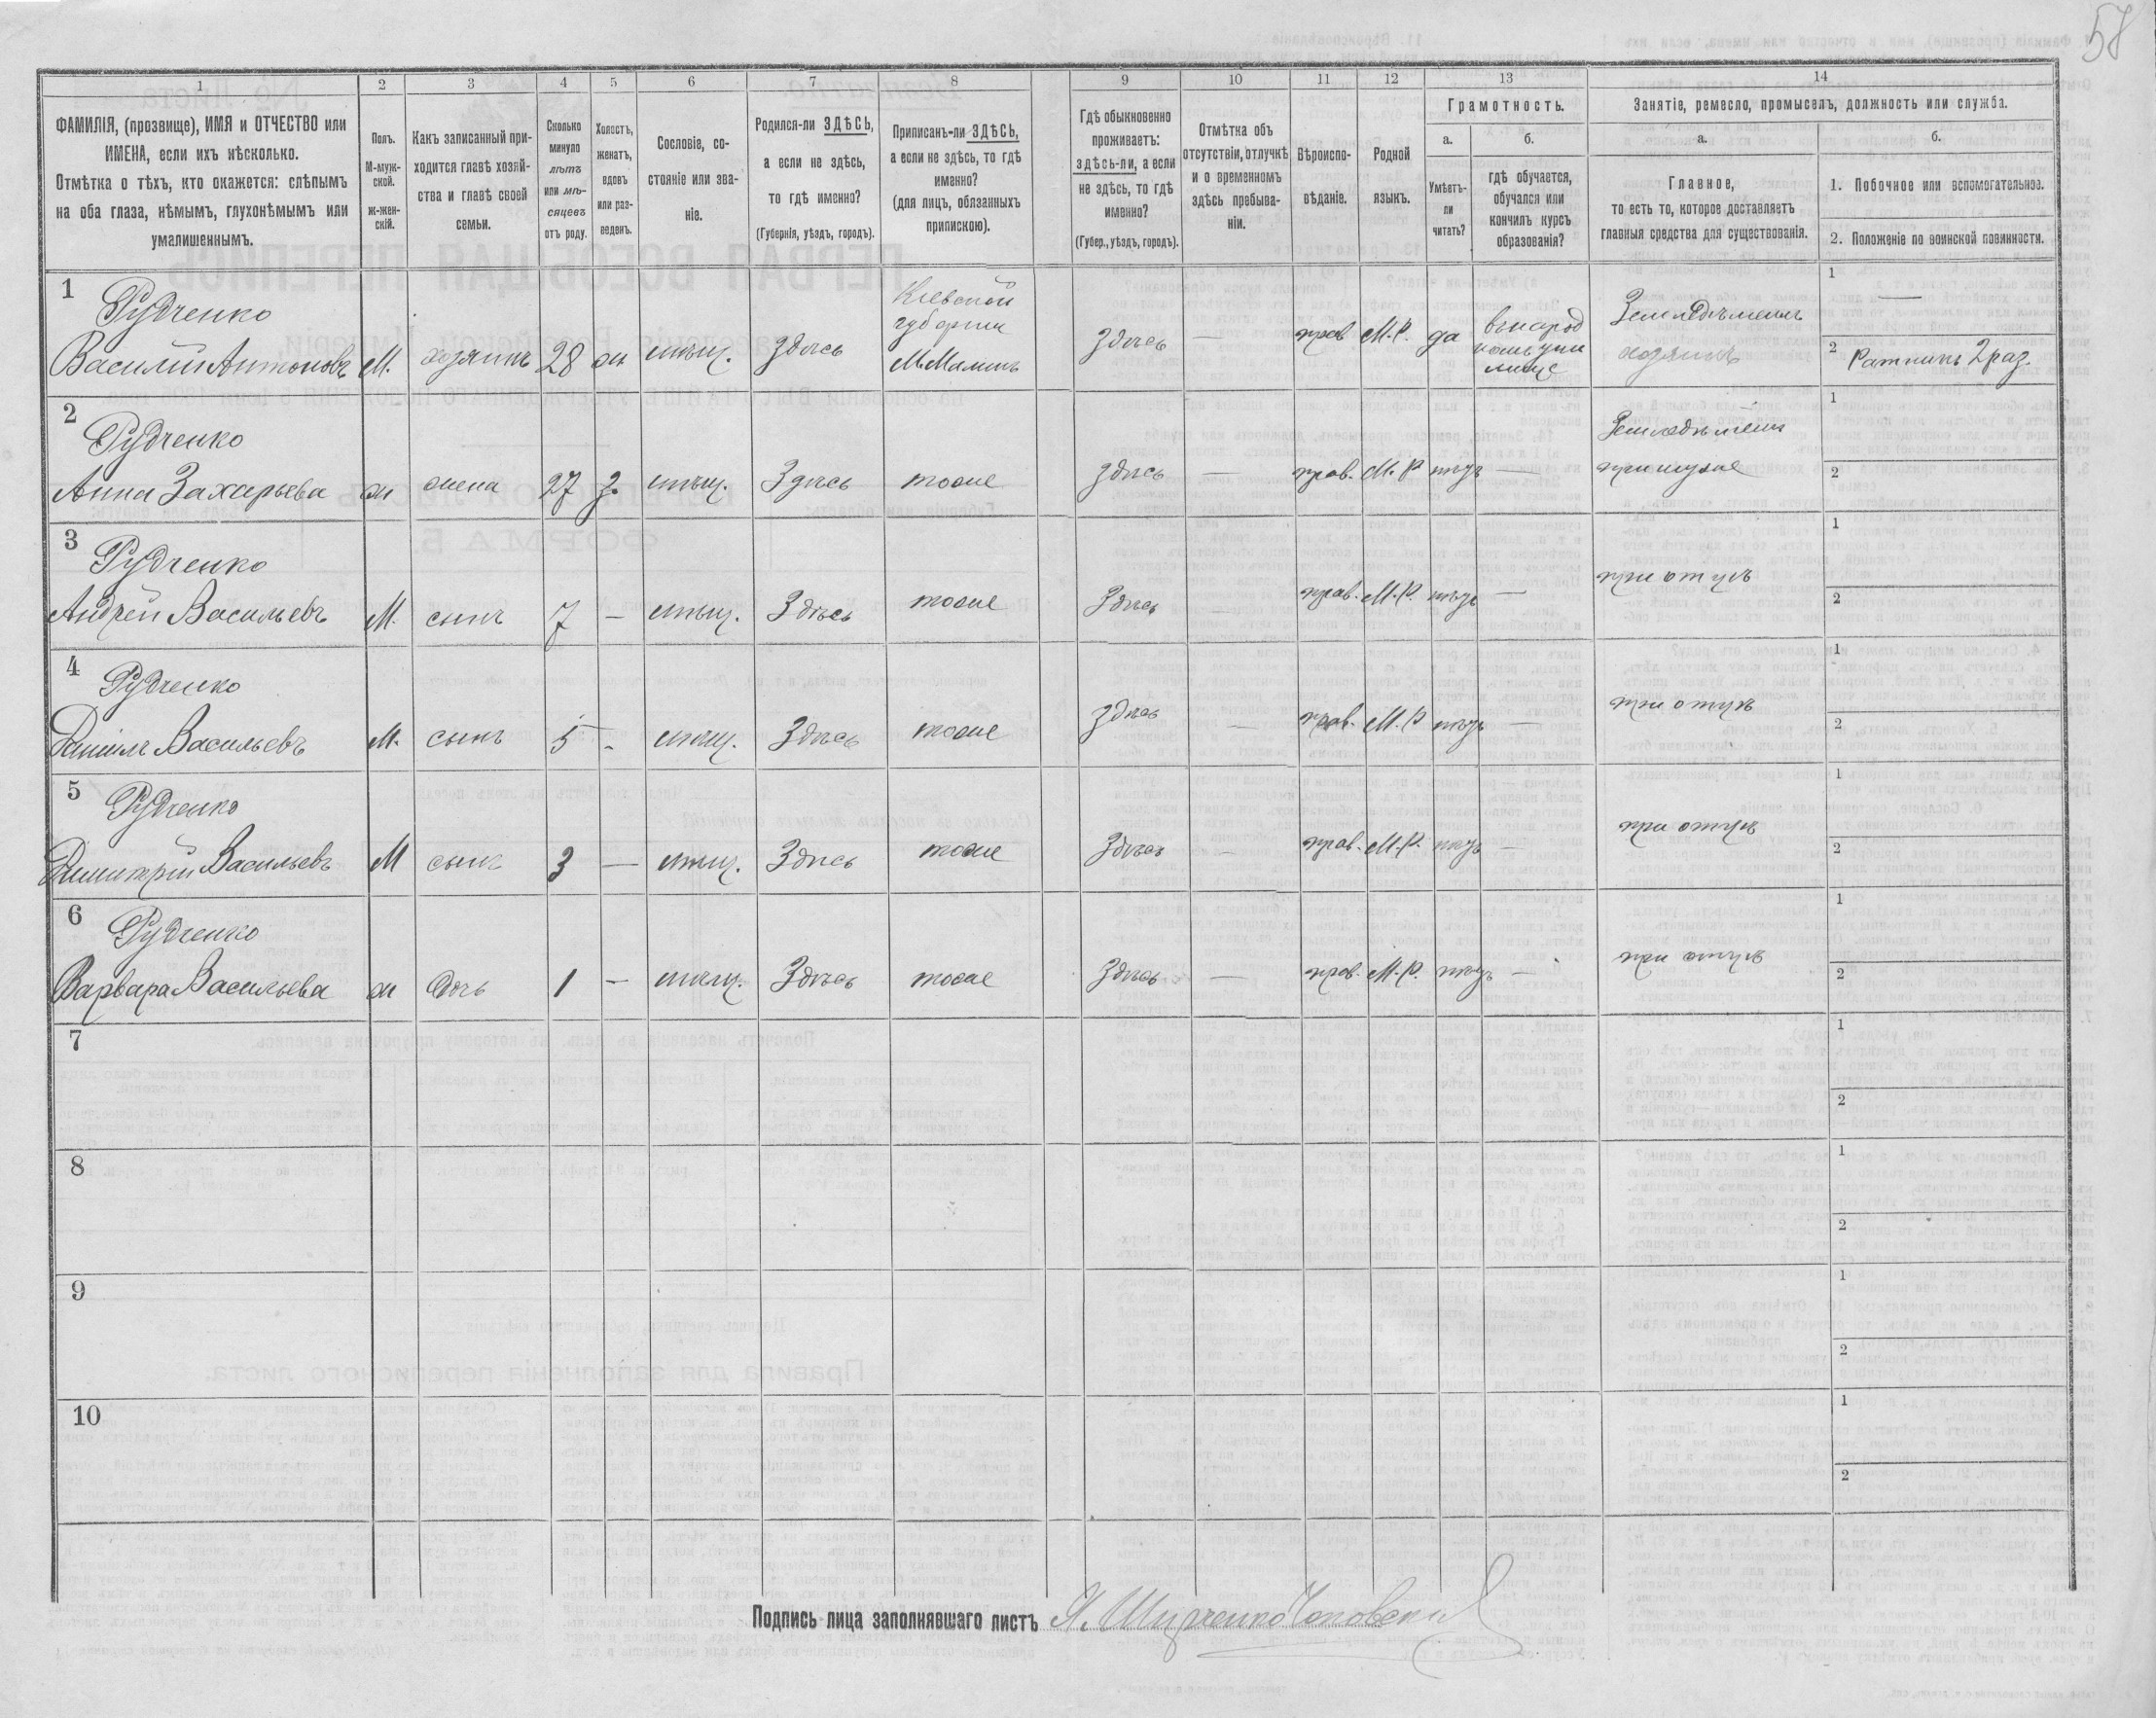 58
1 2 3 4 5 6 7 8 9 10 11 12 13 14
ФАМИЛІЯ, (прозвище), ИМЯ и ОТЧЕСТВО или
ИМЕНА, если ихъ нѣсколько.
Отмѣтка о тѣхъ, кто окажется: слѣпымъ
на оба глаза, нѣмымъ, глухонѣмымъ или
умалишеннымъ.
Полъ.
М-муж-
ской.
Ж-жен-
скій.
Какъ записанный при-
ходится главѣ хозяй-
ства и главѣ своей
семьи.
Сколько
минуло
лѣтъ
или мѣ-
сяцевъ
отъ роду.
Холостъ,
женатъ,
вдовъ
или раз-
веденъ.
Сословіе, со-
стояніе или зва-
ніе.
Родился-ли ЗДѢСЬ,
а если не здѣсь,
то гдѣ именно?
(Губернія, уѣздъ, городъ).
Приписанъ-ли ЗДѢСЬ,
а если не здѣсь, то гдѣ
именно?
(для лицъ, обязанныхъ
припискою).
Гдѣ обыкновенно
проживаетъ:
здѣсь-ли, а если
не здѣсь, то гдѣ
именно?
(Губер., уѣздъ, городъ).
Отмѣтка объ
отсутствіи, отлучкѣ
и о временномъ
здѣсь пребыва-
ніи.
Вѣроиспо-
вѣданіе.
Родной
языкъ.
Грамотность.
а.
Умѣетъ-
ли
читать?
б.
гдѣ обучается,
обучался или
кончилъ курсъ
образованія?
Занятіе, ремесло, промыселъ, должность или служба.
а.
Главное,
то есть то, которое доставляетъ
главныя средства для существованія.
б.
1. Побочное или вспомогательное.
2. Положеніе по воинской повинности.
1
Рудченко
Василій Антоновъ М. хозяинъ 28 ж мѣщ. здѣсь
Кіевской
губерніи
М Малинъ
здѣсь — прав М.Р. да
въ народ
номъ учи
лище
Земледѣлецъ
хозяинъ
1 —
2 Ратникъ 2 раз.
2
Рудченко
Анна Захарьева ж жена 27 з. мѣщ. Здѣсь тоже здѣсь — прав. М.Р. нѣтъ —
Земледѣліемъ
при мужѣ
1
2
3
Рудченко
Андрей Васильевъ М. сынъ 7 — мѣщ. Здѣсь тоже Здѣсь — прав. М.Р. нѣтъ — при отцѣ
1
2
4
Рудченко
Даніилъ Васильевъ М. сынъ 5 - мѣщ. Здѣсь тоже здѣсь — прав. М.Р нѣтъ — при отцѣ
1
2
5
Рудченко
Димитрій Васильевъ М сынъ 3 — мѣщ. Здѣсь тоже Здѣсь — прав. М.Р. нѣтъ — при отцѣ
1
2
6
Рудченко
Варвара Васильева ж дочь 1 — мѣщ. Здѣсь тоже Здѣсь — прав. М.Р. нѣтъ — при отцѣ
1
2
7
1
2
8
1
2
9
1
2
10
1
2
Подпись лица заполнявшаго листъ